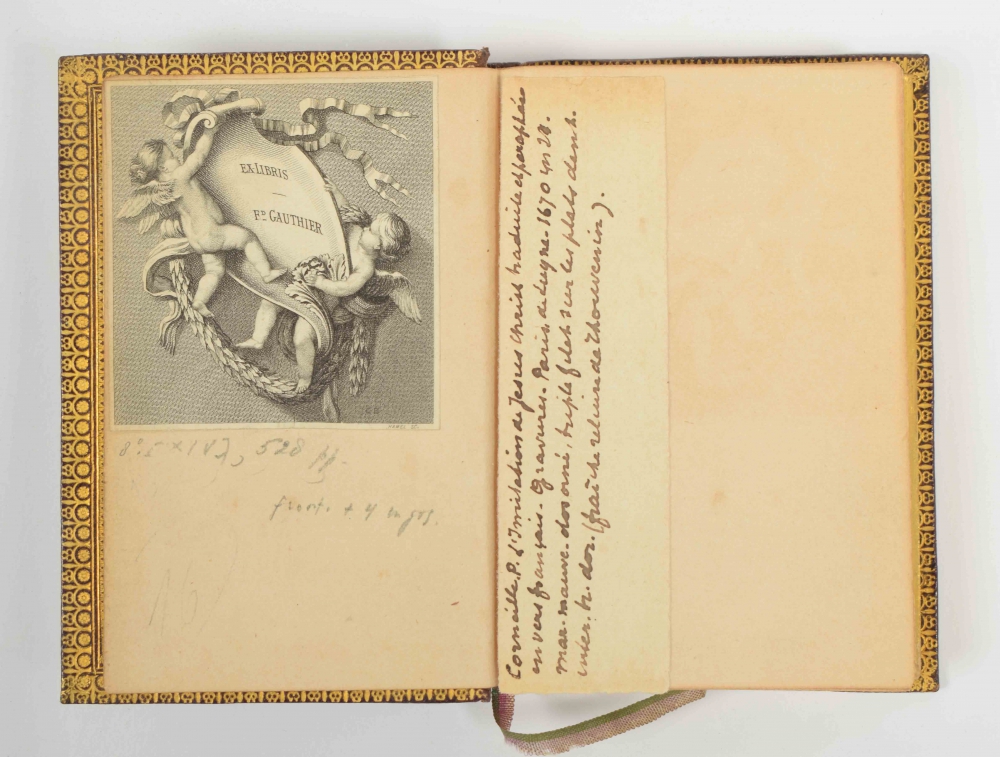 EX-LIBRIS
Fᴰ. GAUTHIER
528 pp.
front. +
Corneille. P. L'Imitation de Jesus Christ traduite et paraphrasée
en vers français. Gravures. Paris. de Luyne. 1670 in 28.
mar. mauve. dos orné, triple filets sur les plats, dent.
inter. tr. dor. (fraîche reliure de Thouvenin).